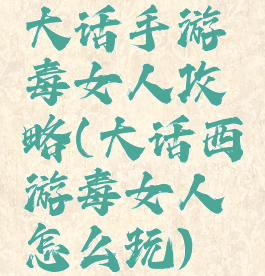 大话手游
毒女人攻
略(大话西
游毒女人
怎么玩)